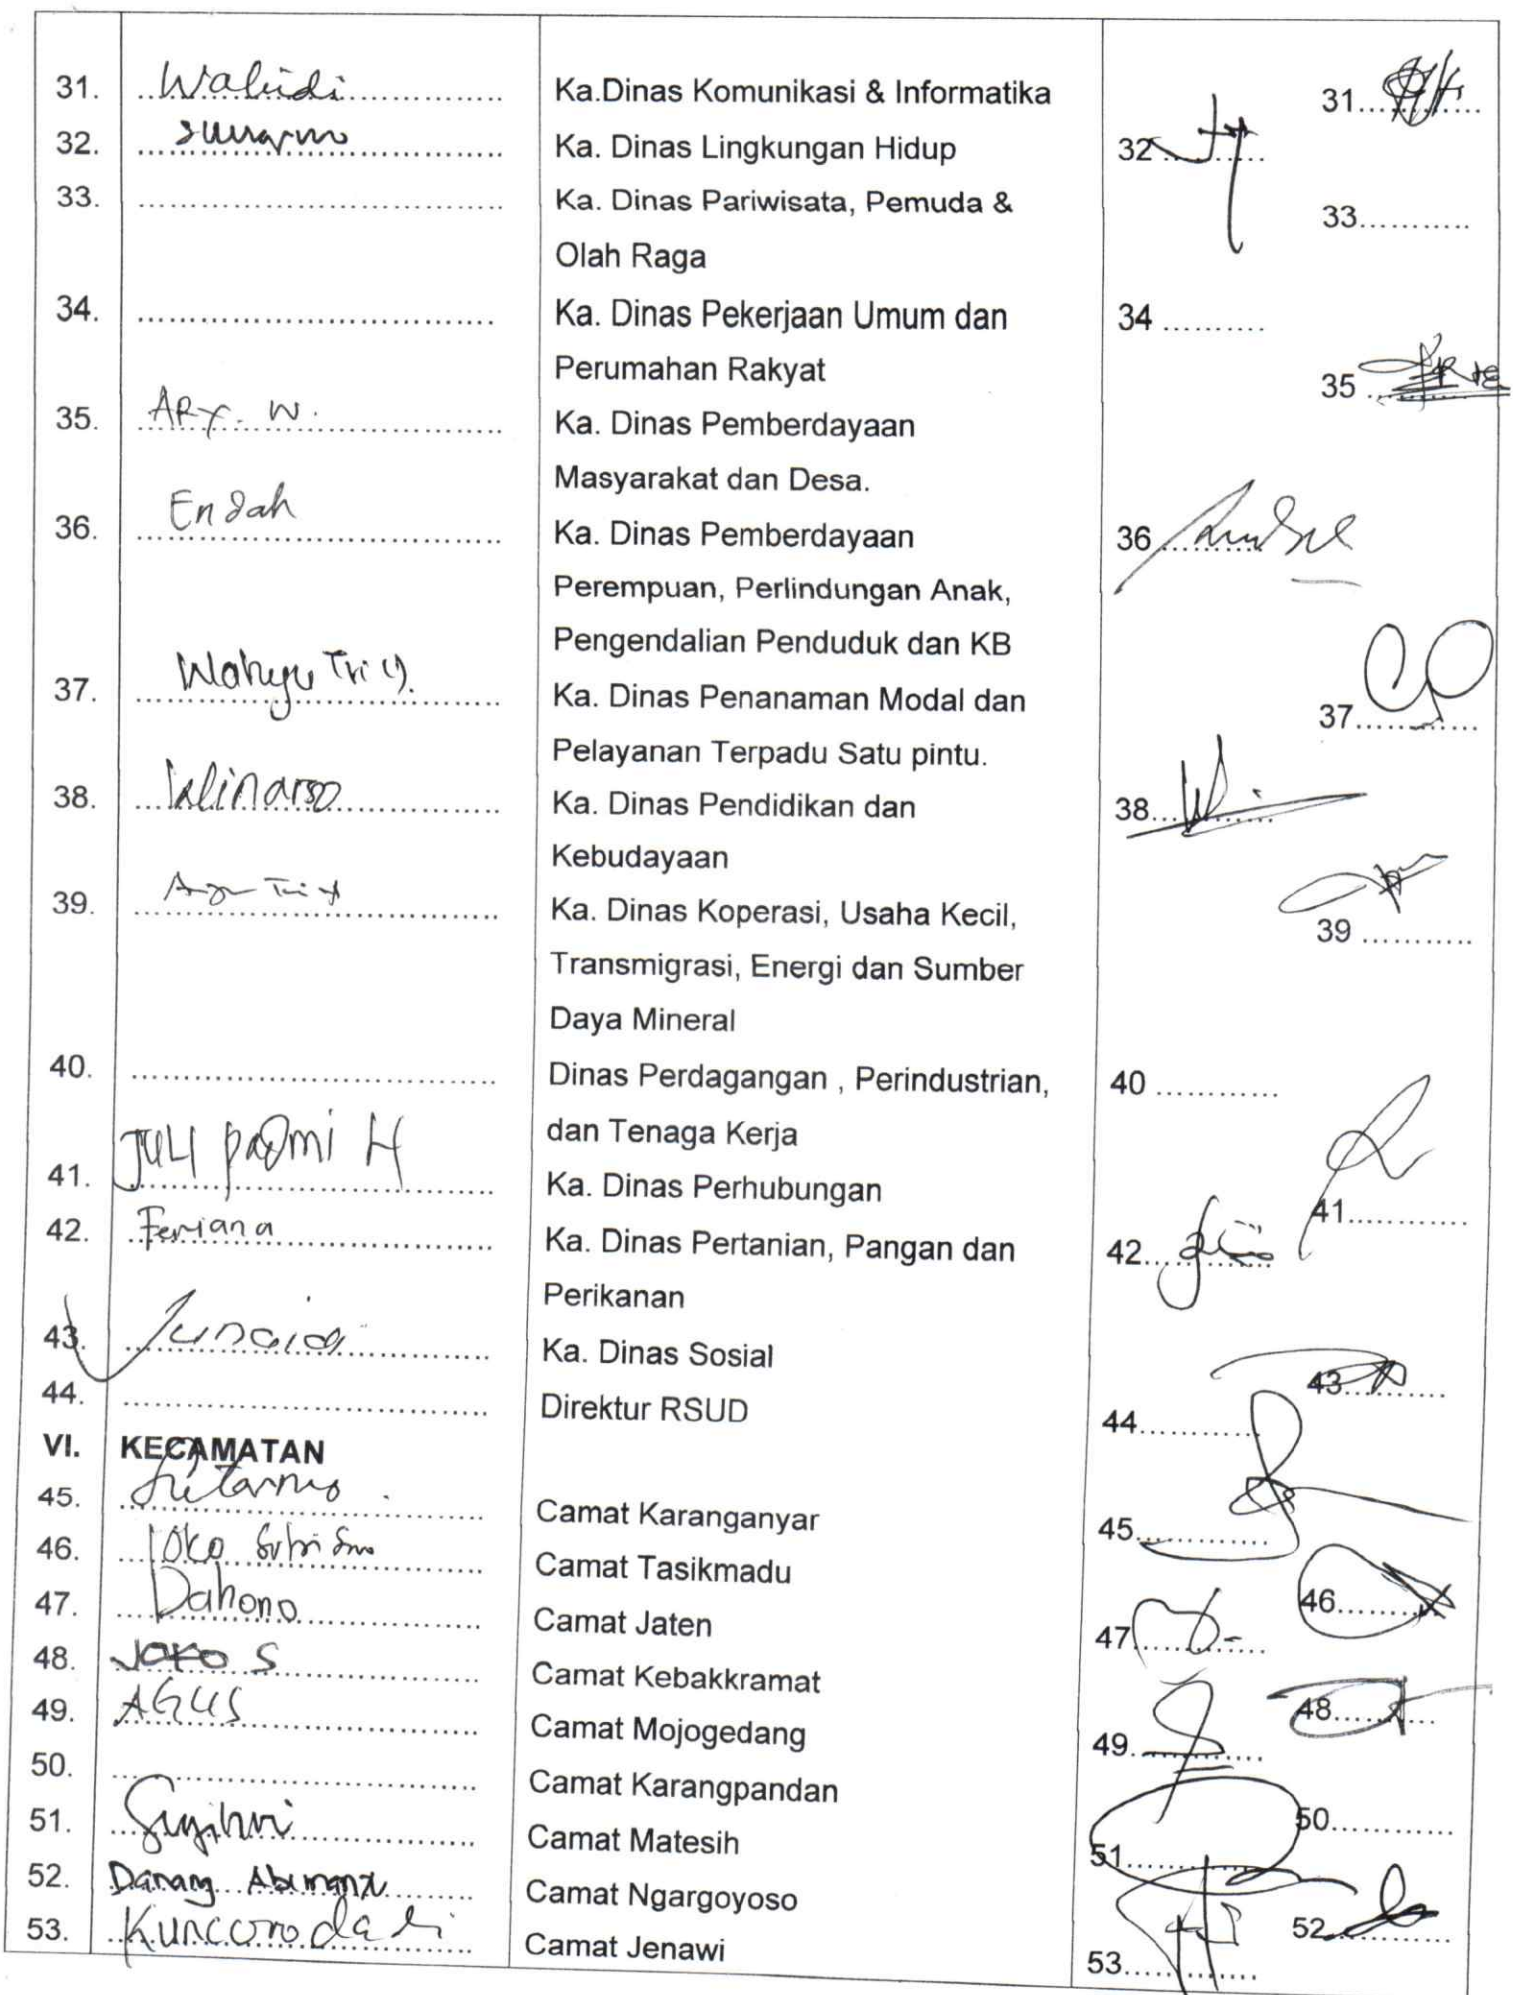 31. Waludi Ka.Dinas Komunikasi & Informatika 31
32. Sunarno Ka. Dinas Lingkungan Hidup 32
33. Ka. Dinas Pariwisata, Pemuda & 33
Olah Raga
34. Ka. Dinas Pekerjaan Umum dan 34
Perumahan Rakyat
35. ARY. W. Ka. Dinas Pemberdayaan 35
Masyarakat dan Desa.
36. Endah Ka. Dinas Pemberdayaan 36
Perempuan, Perlindungan Anak,
Pengendalian Penduduk dan KB
37. Wahyu Tri Ka. Dinas Penanaman Modal dan 37
Pelayanan Terpadu Satu pintu.
38. Winarso Ka. Dinas Pendidikan dan 38
Kebudayaan
39. Ka. Dinas Koperasi, Usaha Kecil, 39
Transmigrasi, Energi dan Sumber
Daya Mineral
40. Dinas Perdagangan , Perindustrian, 40
dan Tenaga Kerja
41. JULI padmi H Ka. Dinas Perhubungan 41
42. Feriana Ka. Dinas Pertanian, Pangan dan 42
Perikanan
43. Junaidi Ka. Dinas Sosial 43
44. Direktur RSUD 44
VI. KECAMATAN
45. Sutarno Camat Karanganyar 45
46. Joko Camat Tasikmadu 46
47. Dahono Camat Jaten 47
48. JOKO S Camat Kebakkramat 48
49. AGUS Camat Mojogedang 49
50. Camat Karangpandan 50
51. Camat Matesih 51
52. Danang Camat Ngargoyoso 52
53. Camat Jenawi 53